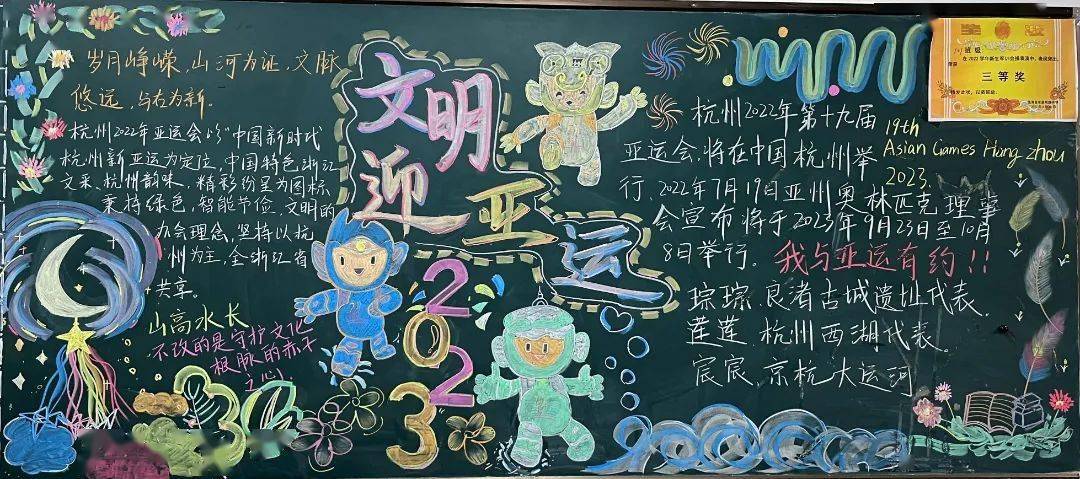 岁月峥嵘,山河为证,文脉
悠远,与古为新。
杭州2022年亚运会以“中国新时代
杭州新亚运为定位,中国特色浙江
文采、杭州韵味,精彩纷呈为图标,
秉持绿色,智能节俭、文明的
办会理念,坚持以杭
州为主,全浙江省
共享。
山高水长
不改的是守护文化
根脉的赤子
之心
文明
迎亚运
2023
杭州2022年第十九届
亚运会,将在中国杭州举
行,2022年7月19日亚州奥林匹克理事
会宣布将于2023年9月23日至10月
8日举行。我与亚运有约!!
19th
Asian Games Hang zhou
2023.
琮琮、良渚古城遗址代表.
莲莲、杭州西湖代表。
宸宸、京杭大运河
班级
三等奖